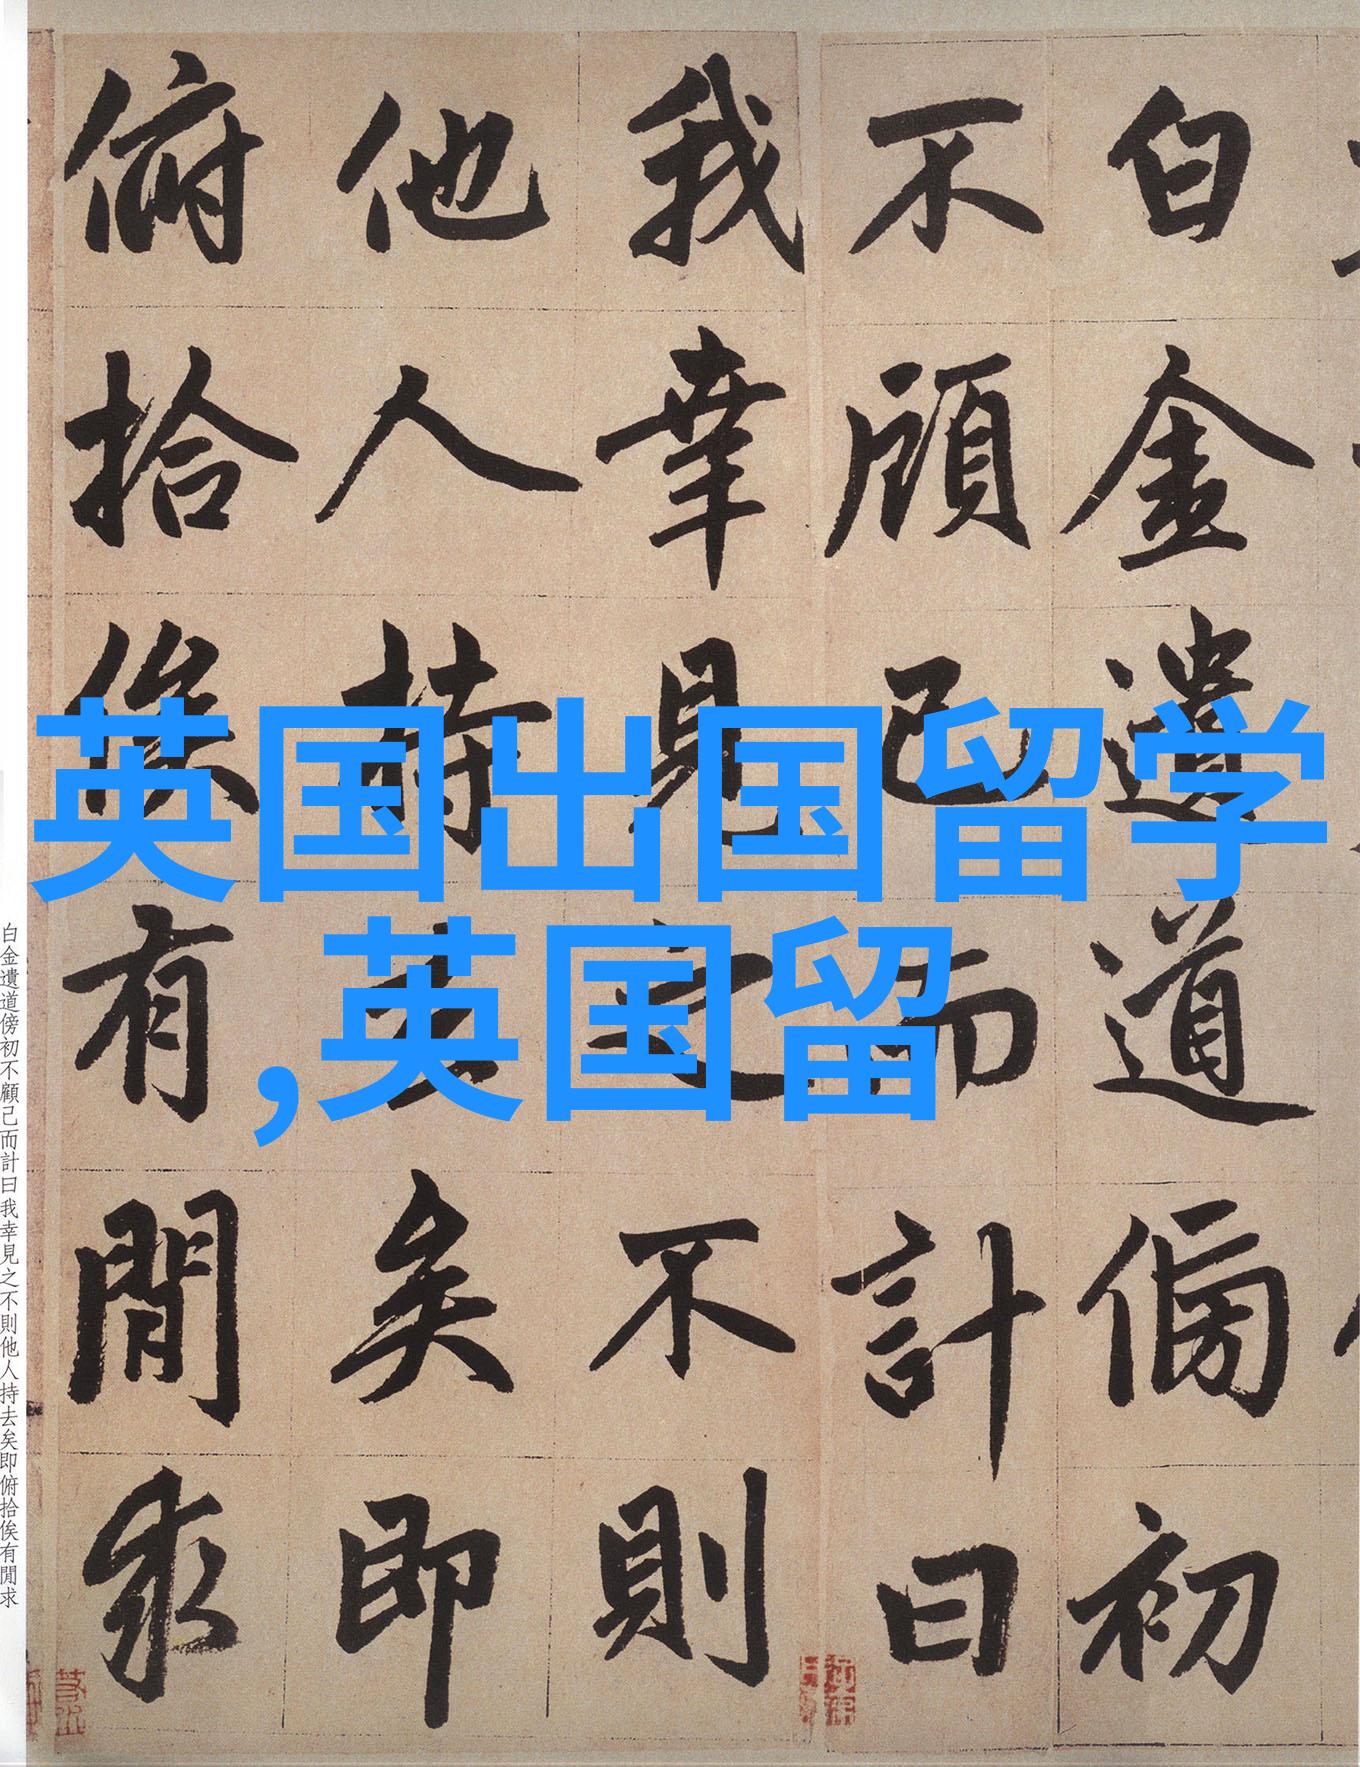 白金遺道傍初
不顧己而計曰
我幸見之不則
他人持去矣即
俯拾俟有閒求
英国出国留学
,英国留
白金遺道傍初不顧己而計曰我幸見之不則他人持去矣即俯拾俟有閒求